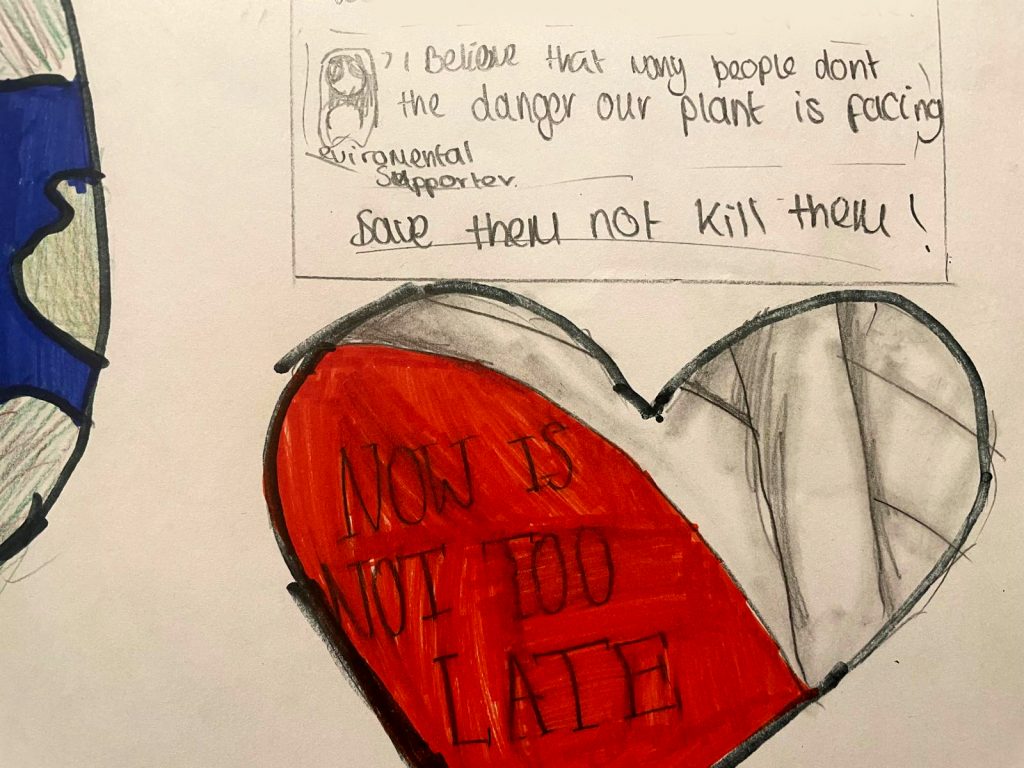 I Believe that many people dont
the danger our plant is facing
enviromental
Supporter.
Save them not kill them!
NOW IS
NOT TOO
LATE